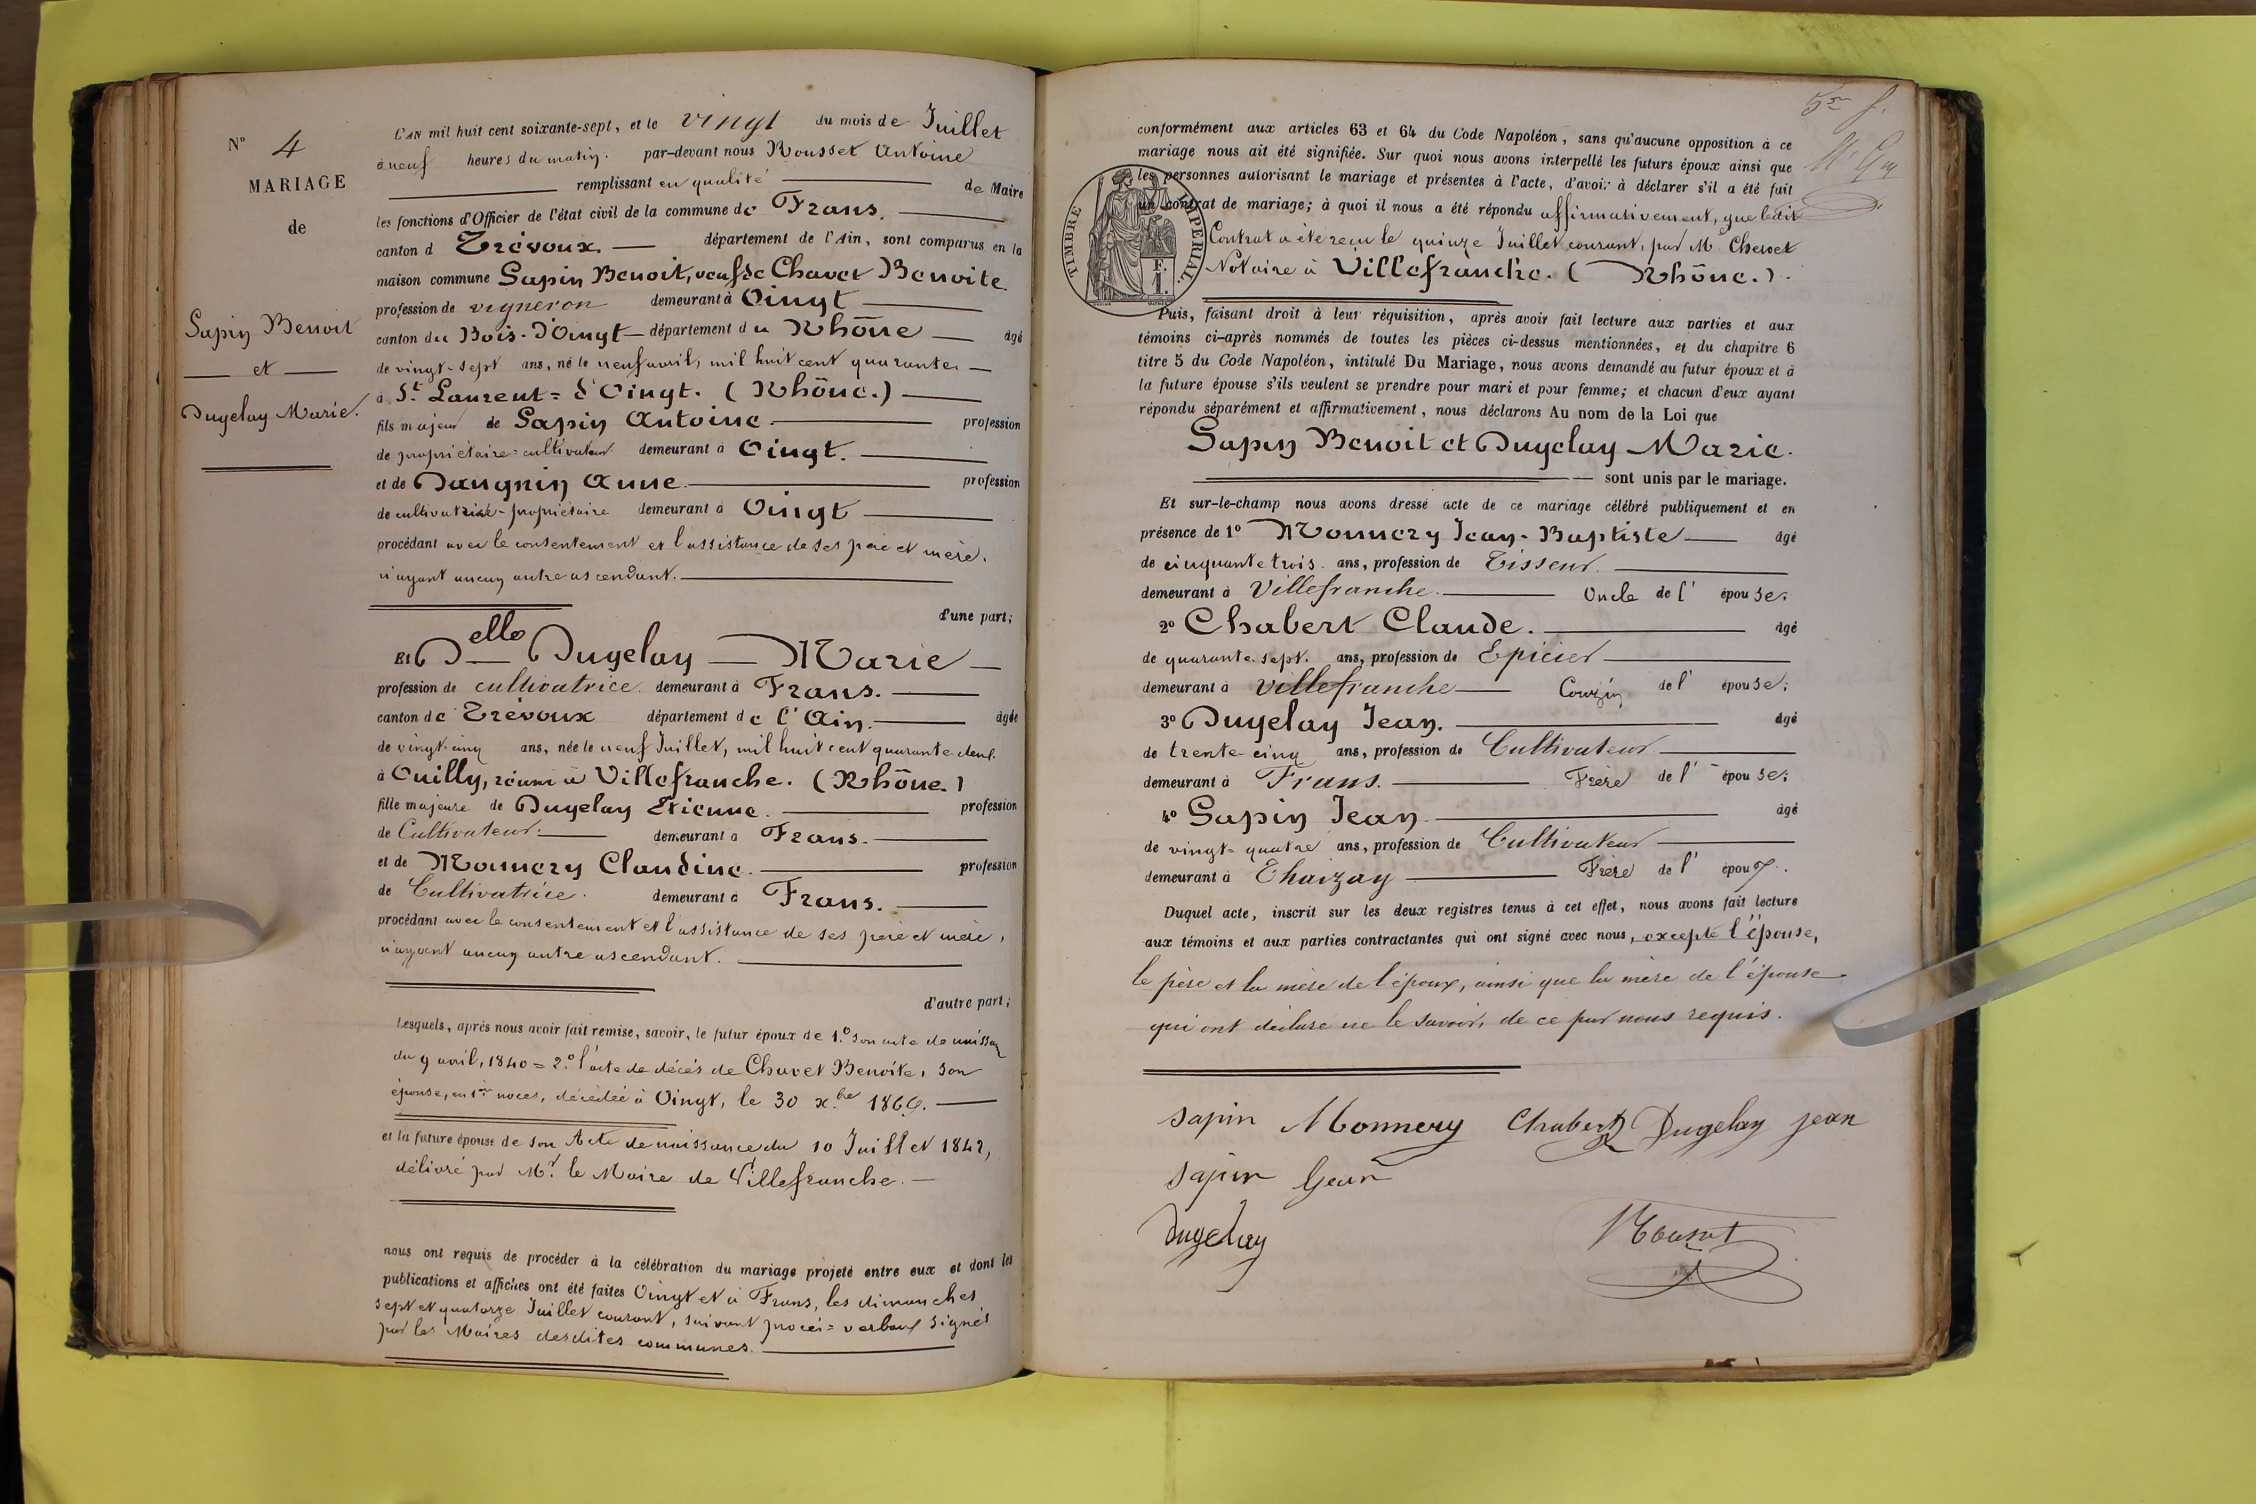 N° 4
MARIAGE
de
Sapin Benoit
et
Dugelay Marie.
L'AN mil huit cent soixante-sept, et le vingt du mois de Juillet
à neuf heures du matin. par-devant nous Rousset Antoine
remplissant en qualité de Maire
les fonctions d'Officier de l'état civil de la commune de Frans.
canton d Trévoux. département de l'Ain, sont comparus en la
maison commune Sapin Benoit, veuf de Chavet Benoite
profession de vigneron demeurant à Oingt
canton du Bois-d'Oingt département du Rhône âgé
de vingt-sept ans, né le neuf avril, mil huit cent quarante
à St Laurent=d'Oingt. (Rhône.)
fils majeur de Sapin Antoine profession
de propriétaire=cultivateur demeurant à Oingt.
et de Dangnin Anne. profession
de cultivatrice-propriétaire demeurant à Oingt
procédant avec le consentement et l'assistance de ses père et mère.
n'ayant aucun autre ascendant.
d'une part;
Et Delle Dugelay Marie
profession de cultivatrice demeurant à Frans.
canton de Trévoux département de l'Ain. âgée
de vingt-cinq ans, née le neuf Juillet, mil huit cent quarante deux
à Ouilly, réuni à Villefranche. (Rhône.)
fille majeure de Dugelay Etienne. profession
de Cultivateur. demeurant à Frans.
et de Monnery Claudine. profession
de Cultivatrice. demeurant à Frans.
procédant avec le consentement et l'assistance de ses père et mère,
n'ayant aucun autre ascendant.
d'autre part;
Lesquels, après nous avoir fait remise, savoir, le futur époux de 1.° son acte de naissan
du 9 avril, 1840 = 2.° l'acte de décès de Chavet Benoite, son
épouse, en 1ères noces, décédée à Oingt, le 30 xbre 1866.
et la future épouse de son Acte de naissance du 10 Juillet 1842,
délivré par Mr. le Maire de Villefranche.
nous ont requis de procéder à la célébration du mariage projeté entre eux et dont les
publications et affiches ont été faites Oingt et à Frans, les dimanches
sept et quatorze Juillet courant, suivant procès=verbaux signés
par les Maires desdites communes.
conformément aux articles 63 et 64 du Code Napoléon, sans qu'aucune opposition à ce
mariage nous ait été signifiée. Sur quoi nous avons interpellé les futurs époux ainsi que
les personnes autorisant le mariage et présentes à l'acte, d'avoir à déclarer s'il a été fait
un contrat de mariage; à quoi il nous a été répondu affirmativement, que ledit
Contrat a été reçu le quinze Juillet courant, par M.
Notaire à Villefranche. (Rhône.).
TIMBRE IMPERIAL.
F.
1.
Puis, faisant droit à leur réquisition, après avoir fait lecture aux parties et aux
témoins ci-après nommés de toutes les pièces ci-dessus mentionnées, et du chapitre 6
titre 5 du Code Napoléon, intitulé Du Mariage, nous avons demandé au futur époux et à
la future épouse s'ils veulent se prendre pour mari et pour femme; et chacun d'eux ayant
répondu séparément et affirmativement, nous déclarons Au nom de la Loi que
Sapin Benoit et Dugelay Marie.
sont unis par le mariage.
Et sur-le-champ nous avons dressé acte de ce mariage célébré publiquement et en
présence de 1° Monnery Jean-Baptiste âgé
de cinquante trois ans, profession de Tisseur.
demeurant à Villefranche. Oncle de l'épouse;
2° Chabert Claude. âgé
de quarante-sept. ans, profession de Epicier
demeurant à Villefranche Couzin de l'épouse;
3° Dugelay Jean. âgé
de trente-cinq ans, profession de Cultivateur
demeurant à Frans. Frère de l'épouse;
4° Sapin Jean âgé
de vingt-quatre ans, profession de Cultivateur
demeurant à Theizay Frère de l'époux.
Duquel acte, inscrit sur les deux registres tenus à cet effet, nous avons fait lecture
aux témoins et aux parties contractantes qui ont signé avec nous, excepté l'épouse,
le père et la mère de l'époux, ainsi que la mère de l'épouse
qui ont déclaré ne le savoir, de ce par nous requis.
Sapin Monnery Chabert Dugelay jean
Sapin Jean
Dugelay Rousset